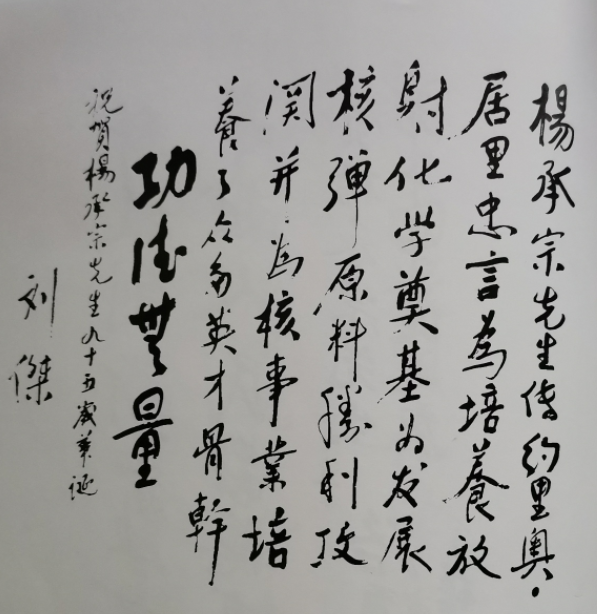 楊承宗先生传约里奥·
居里忠言為培養放
射化学奠基为发展
核弹原料勝利攻
関并為核事業培
養了众多英才骨幹
功德無量
祝賀楊承宗先生九十五歲華诞
刘傑